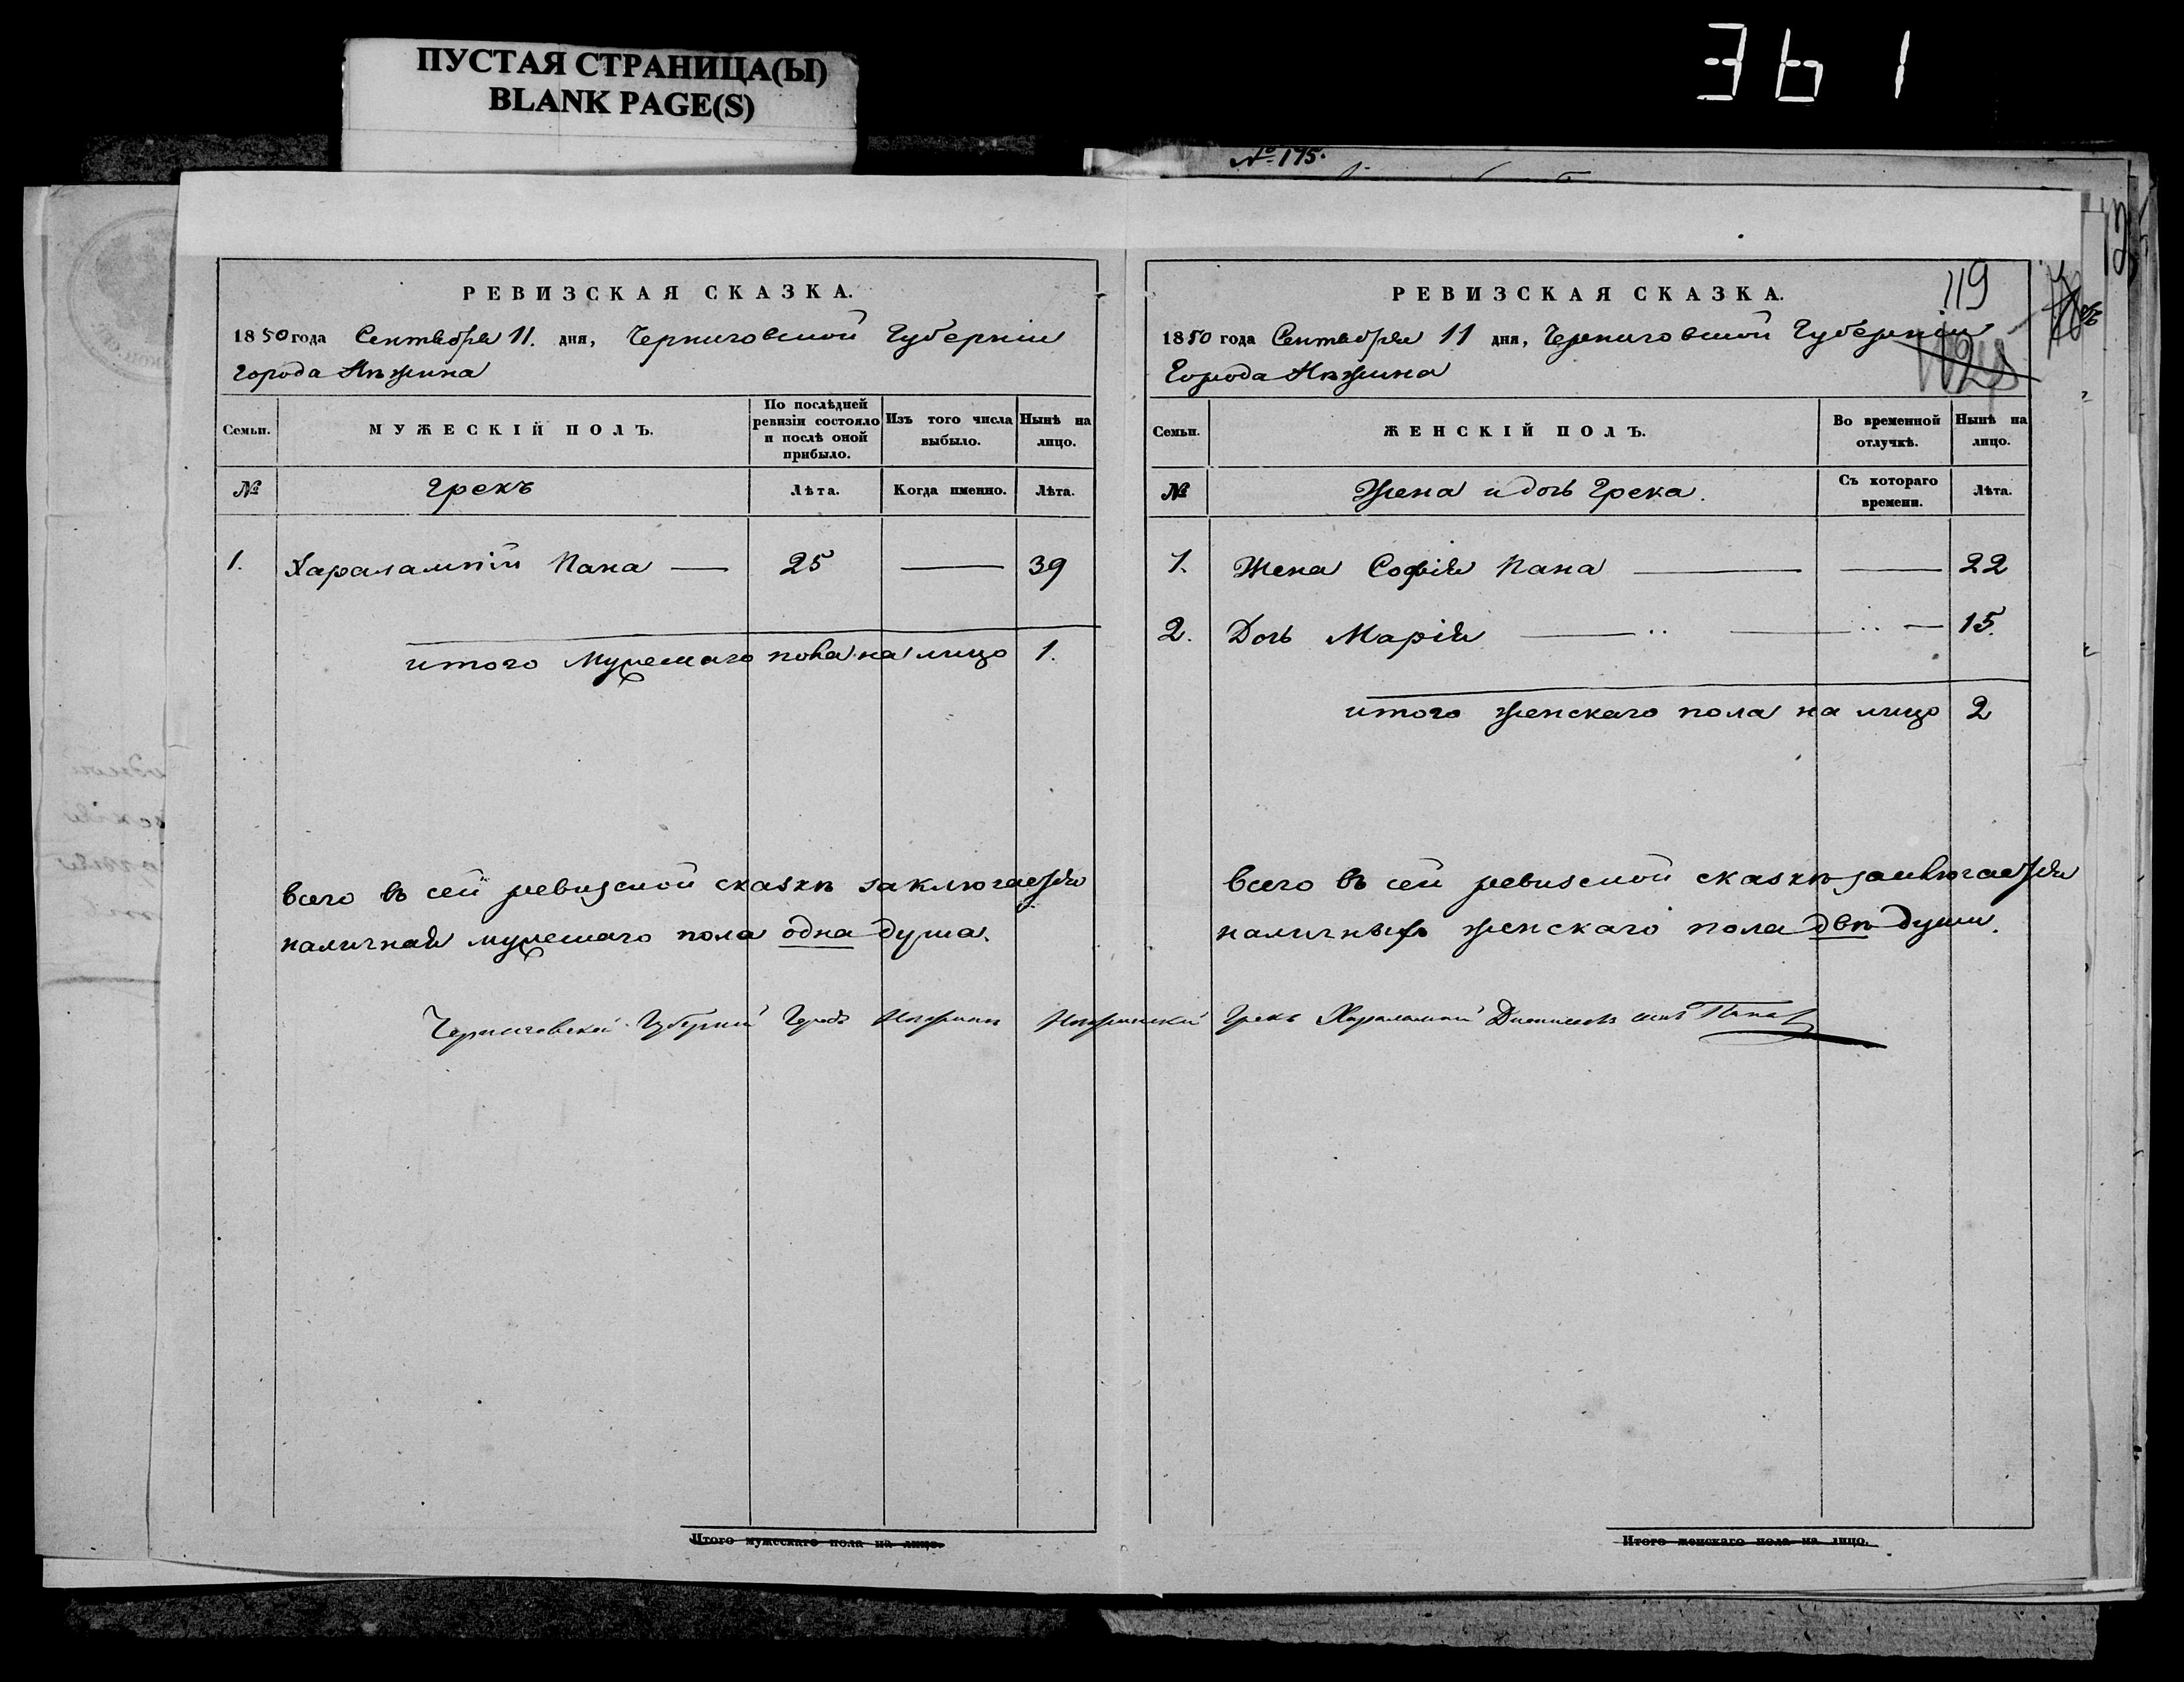 ПУСТАЯ СТРАНИЦА(Ы)
BLANK PAGE(S)
361
№ 175.
РЕВИЗСКАЯ СКАЗКА.
1850 года Сентября 11. дня, Черниговской Губерніи
Города Нѣжина
Семьи.
МУЖЕСКІЙ ПОЛЪ.
По послѣдней ревизіи состояло и послѣ оной прибыло.
Изъ того числа выбыло.
Нынѣ на лицо.
№
Грекъ
Лѣта.
Когда именно.
Лѣта.
1. Харалампій Пана — 25 — 39
итого Мужескаго пола на лицо 1.
Всего въ сей ревизской сказкѣ заключается
наличная мужескаго пола одна душа.
Итого мужескаго пола на лицо.
119
РЕВИЗСКАЯ СКАЗКА.
1850 года Сентября 11 дня, Черниговской Губерніи
Города Нѣжина
Семьи.
ЖЕНСКІЙ ПОЛЪ.
Во временной отлучкѣ.
Нынѣ на лицо.
№
Жена и дочь Грека.
Съ котораго времени.
Лѣта.
1. Жена Софія Пана — — 22
2. Дочь Марія — " — " — 15.
итого женскаго пола на лицо 2
Всего въ сей ревизской сказкѣ заключается
наличныхъ женскаго пола двѣ души.
Черниговской Губерніи Города Нѣжина Нѣжинскій Грекъ Харалампій Пана
Итого женскаго пола на лицо.